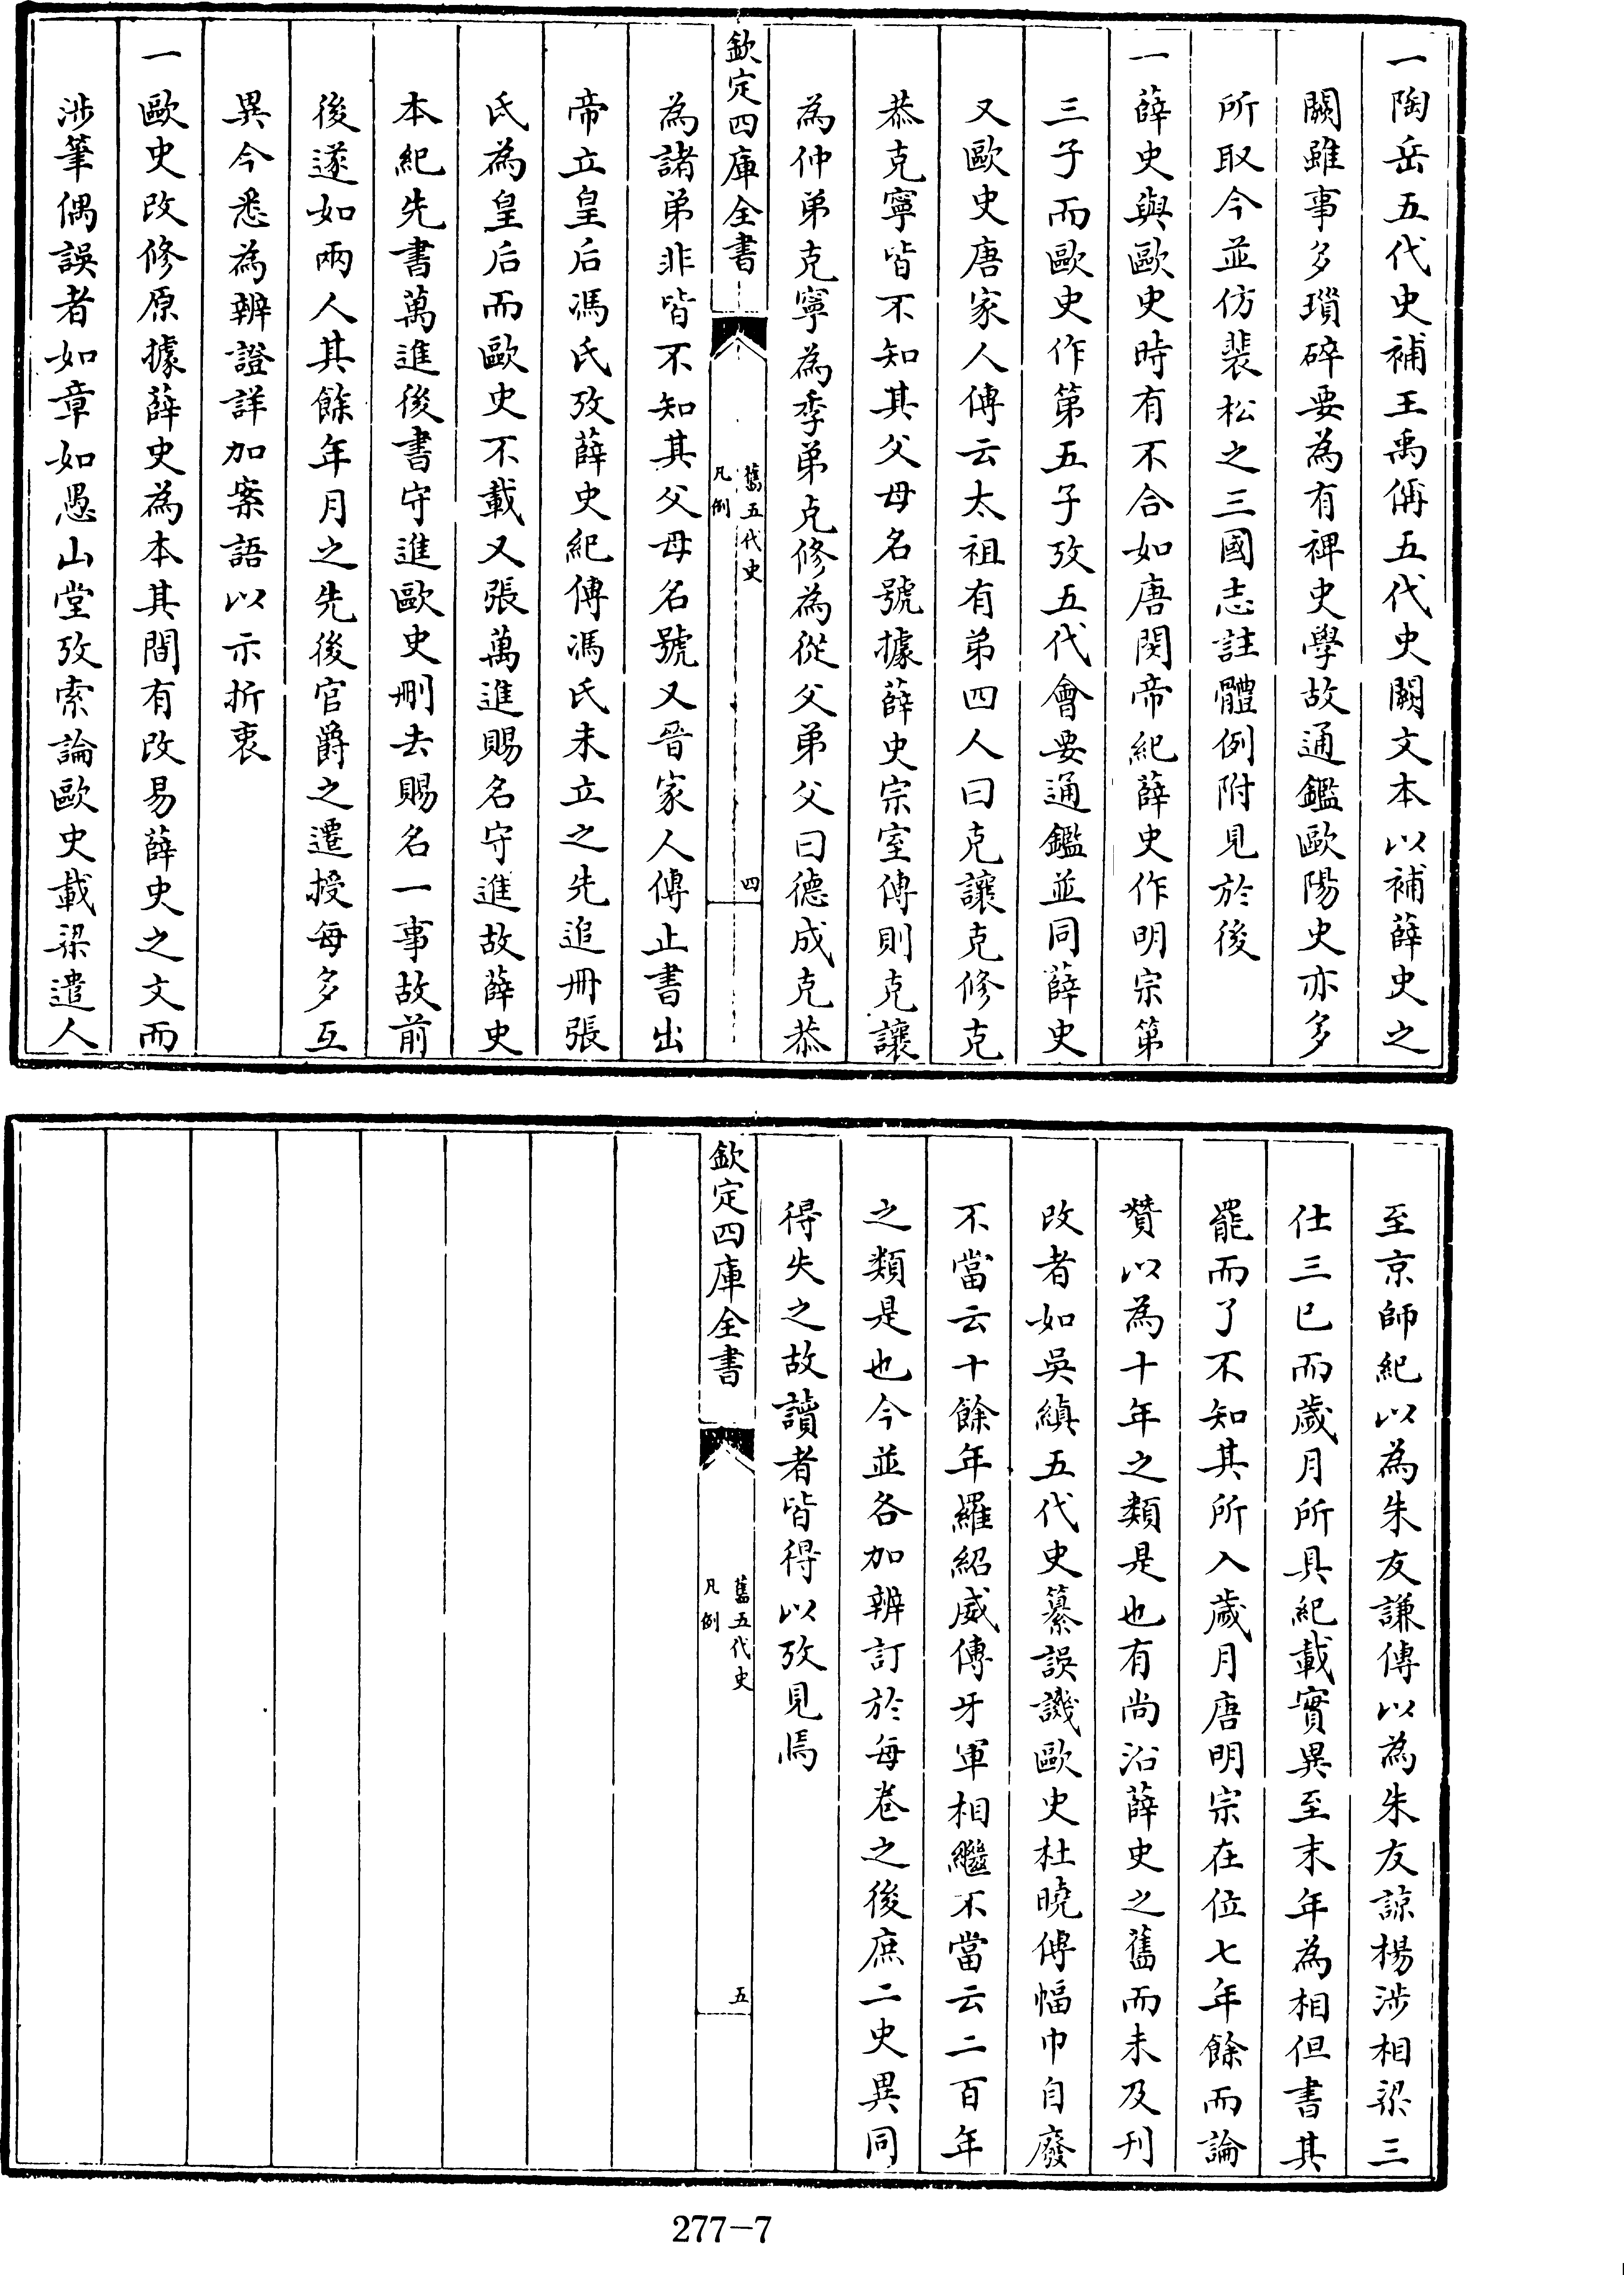 一陶岳五代史補王禹偁五代史闕文本以補薛史之
闕雖事多瑣碎要為有裨史學故通鑑歐陽史亦多
所取今並仿裴松之三國志註體例附見於後
一薛史與歐史時有不合如唐閔帝紀薛史作明宗第
三子而歐史作第五子攷五代會要通鑑並同薛史
又歐史唐家人傳云太祖有弟四人曰克讓克修克
恭克寧皆不知其父母名號據薛史宗室傳則克讓
為仲弟克寧為季弟克修為從父弟父曰德成克恭
欽定四庫全書
舊五代史
凡例
四
為諸弟非皆不知其父母名號又晉家人傳止書出
帝立皇后馮氏攷薛史紀傳馮氏未立之先追冊張
氏為皇后而歐史不載又張萬進賜名守進故薛史
本紀先書萬進後書守進歐史刪去賜名一事故前
後遂如兩人其餘年月之先後官爵之遷授每多互
異今悉為辨證詳加案語以示折衷
一歐史改修原據薛史為本其間有改易薛史之文而
涉筆偶誤者如章如愚山堂攷索論歐史載梁遣人
至京師紀以為朱友謙傳以為朱友諒楊涉相梁三
仕三已而歲月所具紀載實異至末年為相但書其
罷而了不知其所入歲月唐明宗在位七年餘而論
贊以為十年之類是也有尚沿薛史之舊而未及刊
改者如吳縝五代史纂誤譏歐史杜曉傳幅巾自廢
不當云十餘年羅紹威傳牙軍相繼不當云二百年
之類是也今並各加辨訂於每卷之後庶二史異同
得失之故讀者皆得以攷見焉
欽定四庫全書
舊五代史
凡例
五
277-7